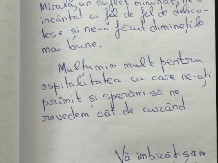 Mirela, un suflet minunat, ne-a
încântat cu fel de fel de delica-
tese și ne-a făcut diminețile
mai bune.
Mulțumim mult pentru
ospitalitatea cu care ne-ați
primit și sperăm să ne
revedem cât de curând
Vă îmbrățișăm